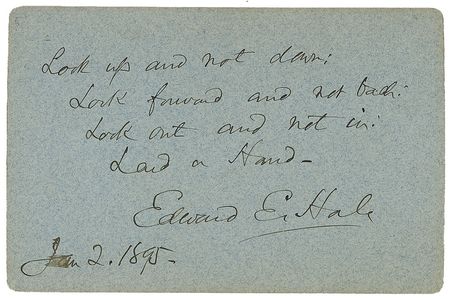 Look up and not down:
Look forward and not back:
Look out and not in:
Lend a Hand—
Edward E. Hale
Jan 2. 1895-